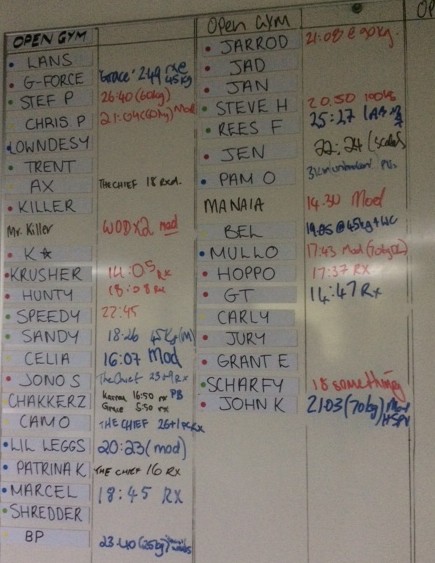 OPEN GYM
LANS
G-FORCE Grace: 2:49 rx @ 45kg
STEF P 26:40 (60kg)
CHRIS P 21:04 (40kg) Mod
LOWNDESY
TRENT
AX THE CHIEF 18 Rxd.
KILLER
Mr. Killer WODX2 mod
K☆
KRUSHER 14:05 Rx
HUNTY 18:08 Rx
SPEEDY 22:45
SANDY 18:26 45kg (M)
CELIA 16:07 Mod
JONO S The Chief Rx
CHAKKERZ Karen 16:50 rx PB
Grace 5:50 rx
CAMO THE CHIEF Rx
LIL LEGGS 20:23 (mod)
PATRINA K THE CHIEF 16 RX
MARCEL 18:45 RX
SHREDDER
BP 23:40 (25kg)
OPEN GYM
JARROD 21:08 @ 90kg.
JAD
JAN
STEVE H 20.50
REES F 25:27
JEN 22:24 (scaled)
PAM O
MANAIA 14.30 Mod
BEL 19:05 @ 45kg +
MULLO 17:43 Mod
HOPPO 17:37 RX
GT 14:47 Rx
CARLY
JURY
GRANT E
SCHARFY 18 something
JOHN K 21:03 (70kg) Mod
HSPU
OP